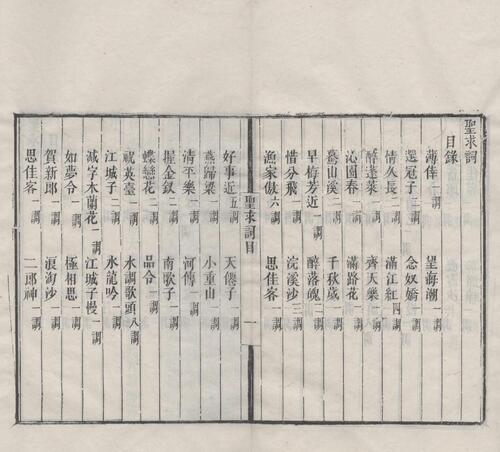 聖求詞
目錄
薄倖一調 望海潮一調
選冠子二調 念奴嬌二調
情久長二調 滿江紅四調
醉蓬萊一調 齊天樂一調
沁園春一調 滿路花一調
驀山溪二調 千秋歲一調
早梅芳近一調 醉落魄一調
惜分飛一調 浣溪沙三調
漁家傲六調 思佳客一調
聖求詞目 一
好事近五調 天僊子一調
燕歸梁一調 小重山一調
清平樂一調 河傳一調
握金釵一調 南歌子一調
蝶戀花二調 品令一調
祝英臺一調 水調歌頭八調
江城子二調 水龍吟一調
減字木蘭花一調 江城子慢一調
如夢令一調 極相思一調
賀新郎一調 浪淘沙一調
思佳客一調 二郎神一調